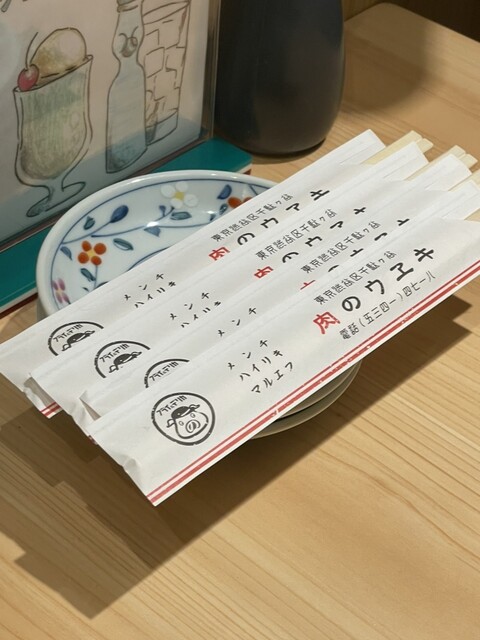 東京渋谷区千駄ヶ谷
肉のウヱキ
メンチ
ハイリキ
東京渋谷区千駄ヶ谷
肉のウヱキ
メンチ
ハイリキ
東京渋谷区千駄ヶ谷
メンチ
東京渋谷区千駄ヶ谷
肉のウヱキ
電話(五三四一)四七一八
メンチ
ハイリキ
マルエフ